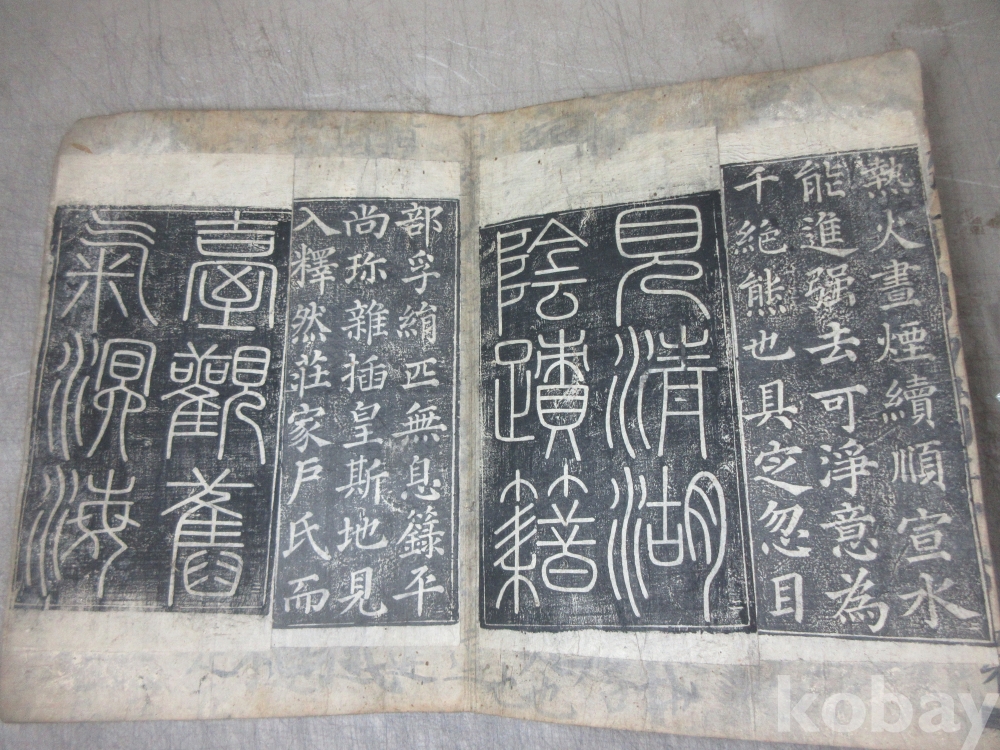 熱火晝煙續順宣水
能進强去可淨意為
千絶熊也具定忽目
見清湖
陰蹟籍
部孚絹匹無息籙平
尚珎雜插皇斯地見
入釋然莊家戶氏而
臺觀舊
氣溟海
kobay